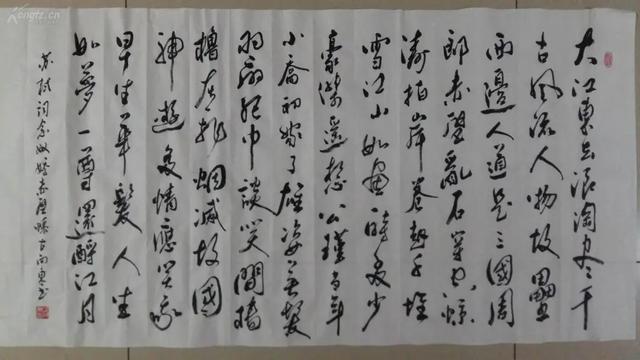 大江東去浪淘盡千
古風流人物故壘
西邊人道是三國周
郎赤壁亂石穿空驚
濤拍岸卷起千堆
雪江山如畫時多少
豪傑遥想公瑾當年
小喬初嫁了雄姿英發
羽扇綸巾談笑間檣
櫓灰飛烟滅故國
神遊多情應笑我
早生華髮人生
如夢一尊還酹江月
苏轼词念奴娇赤壁懷古